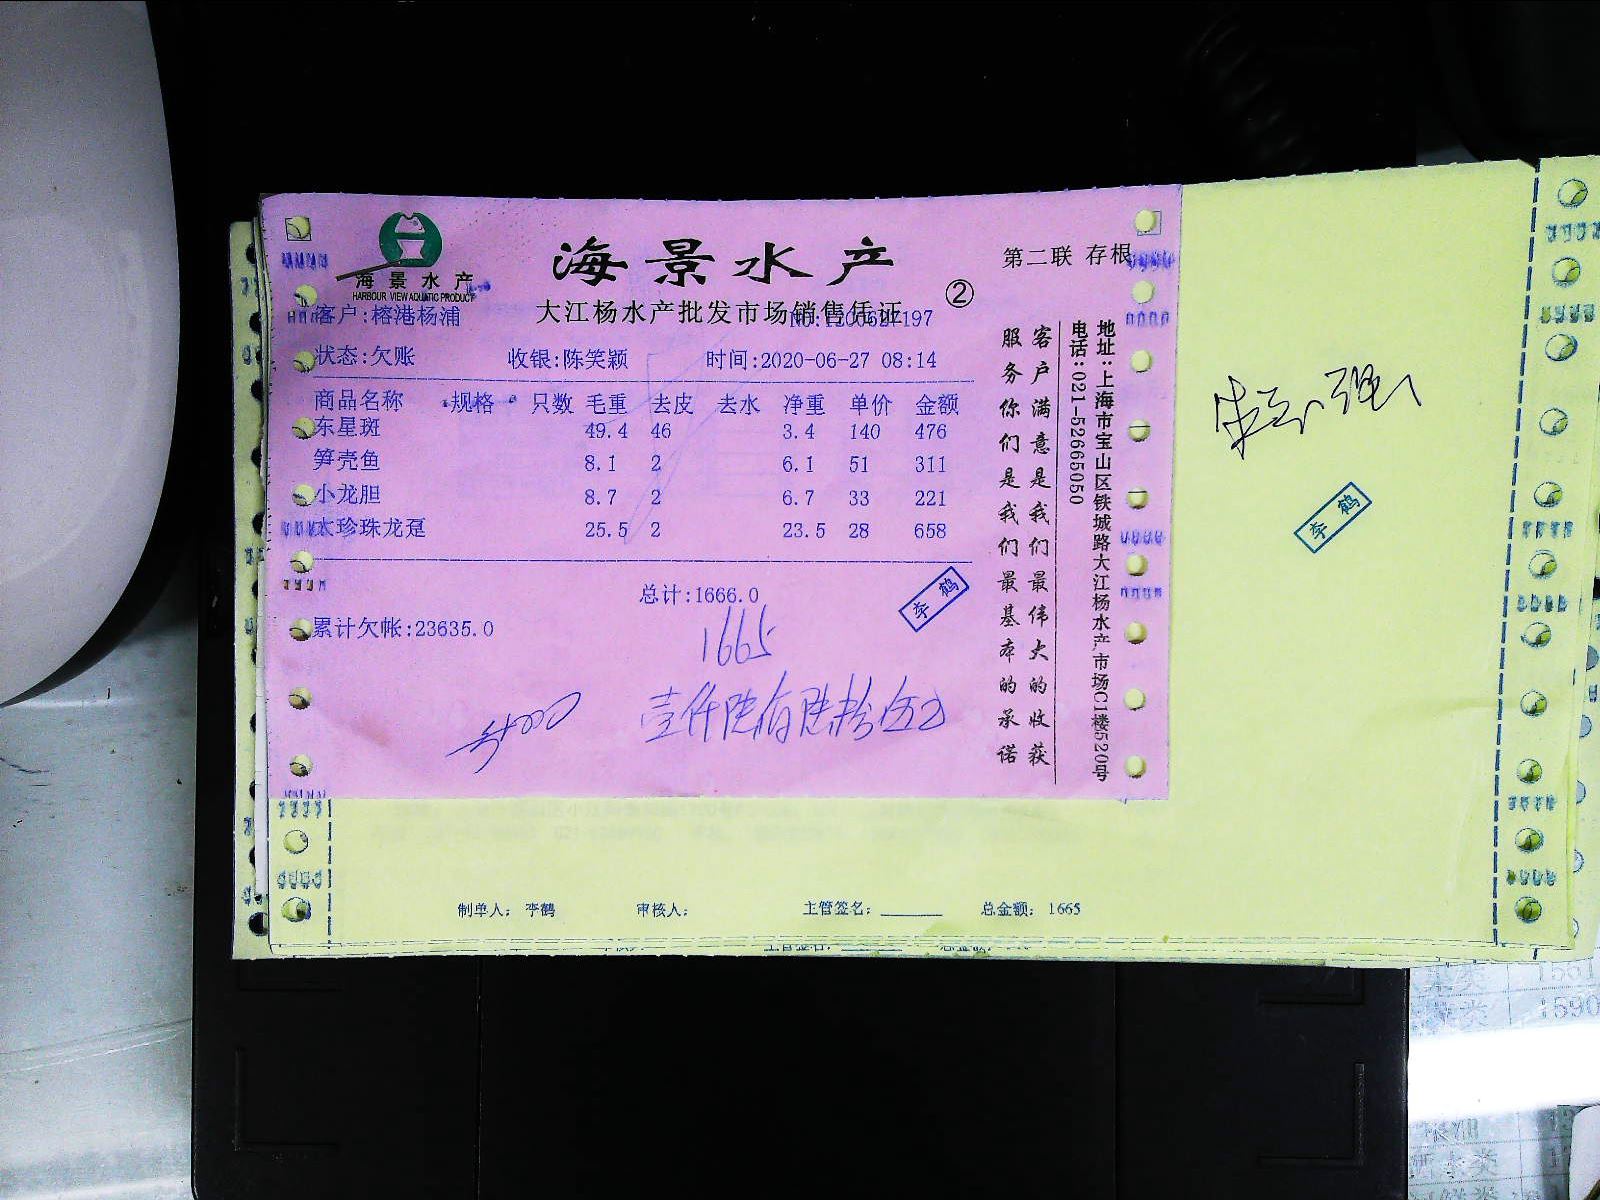 海景水产
HARBOUR VIEW AQUATIC PRODUCT
海景水产
大江杨水产批发市场销售凭证
②
第二联 存根
客户:榕港杨浦
状态:欠账 收银:陈笑颖 时间:2020-06-27 08:14
商品名称 规格 只数 毛重 去皮 去水 净重 单价 金额
东星斑 49.4 46 3.4 140 476
笋壳鱼 8.1 2 6.1 51 311
小龙胆 8.7 2 6.7 33 221
大珍珠龙趸 25.5 2 23.5 28 658
总计:1666.0
累计欠帐:23635.0
1665
壹仟陆佰陆拾伍元
李鹤
客户满意是我们最伟大的收获
服务你们是我们最基本的承诺
地址:上海市宝山区铁城路大江杨水产市场C1楼520号
电话:021-52665050
李鹤
制单人: 李鹤 审核人: 主管签名: 总金额: 1665